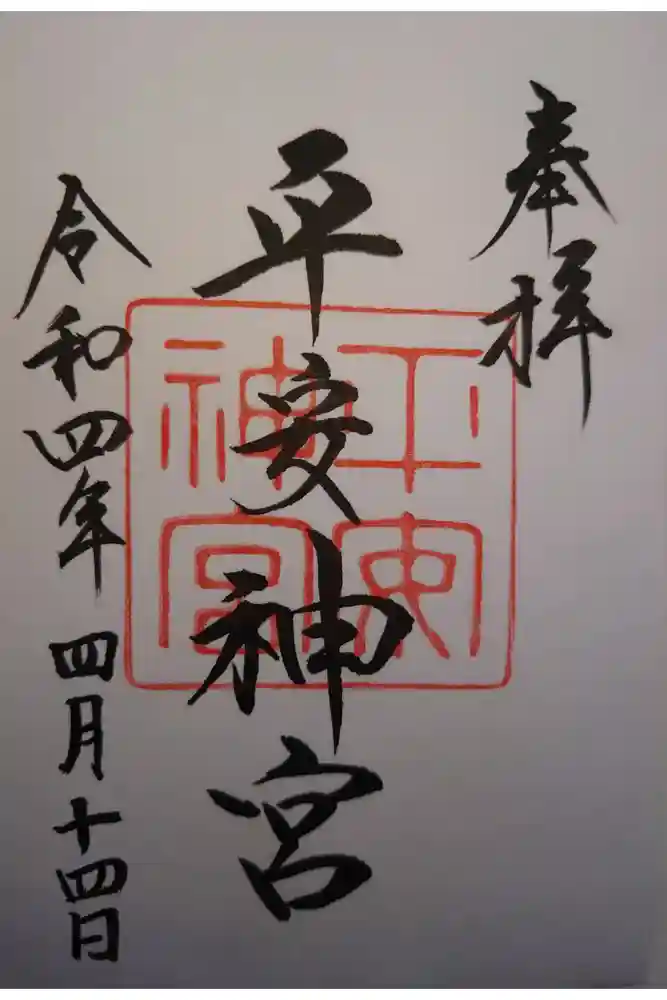 奉拝
平安神宮
平安神宮
令和四年 四月十四日